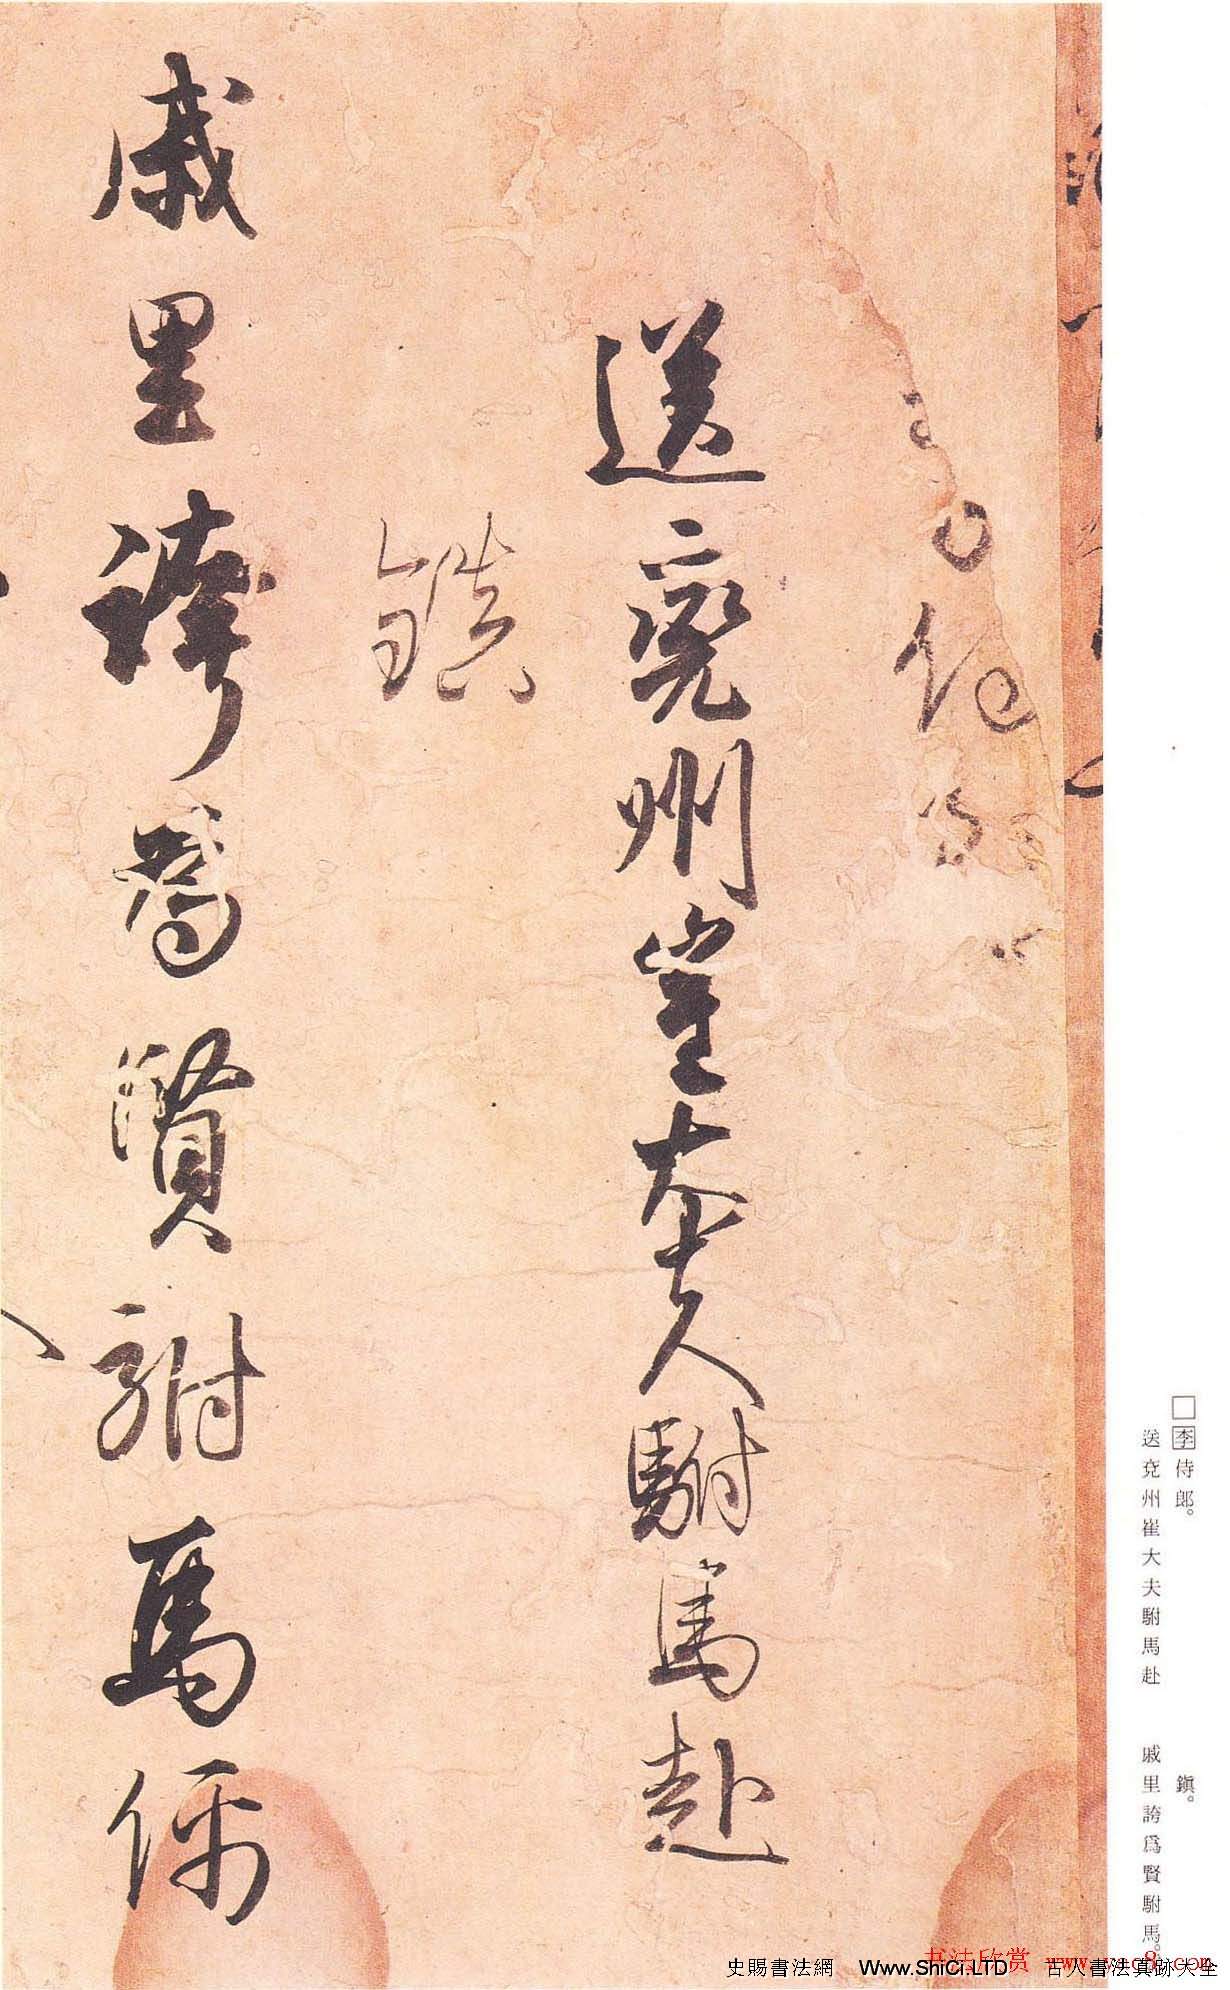 送兖州崔大夫駙馬赴
鎮
戚里誇為賢駙馬儒
□李侍郎。
送兖州崔大夫駙馬赴
鎭。
戚里誇爲賢駙馬。
书法欣赏
史賜書法網 Www.ShiCi.LTD 古人書法真跡大全